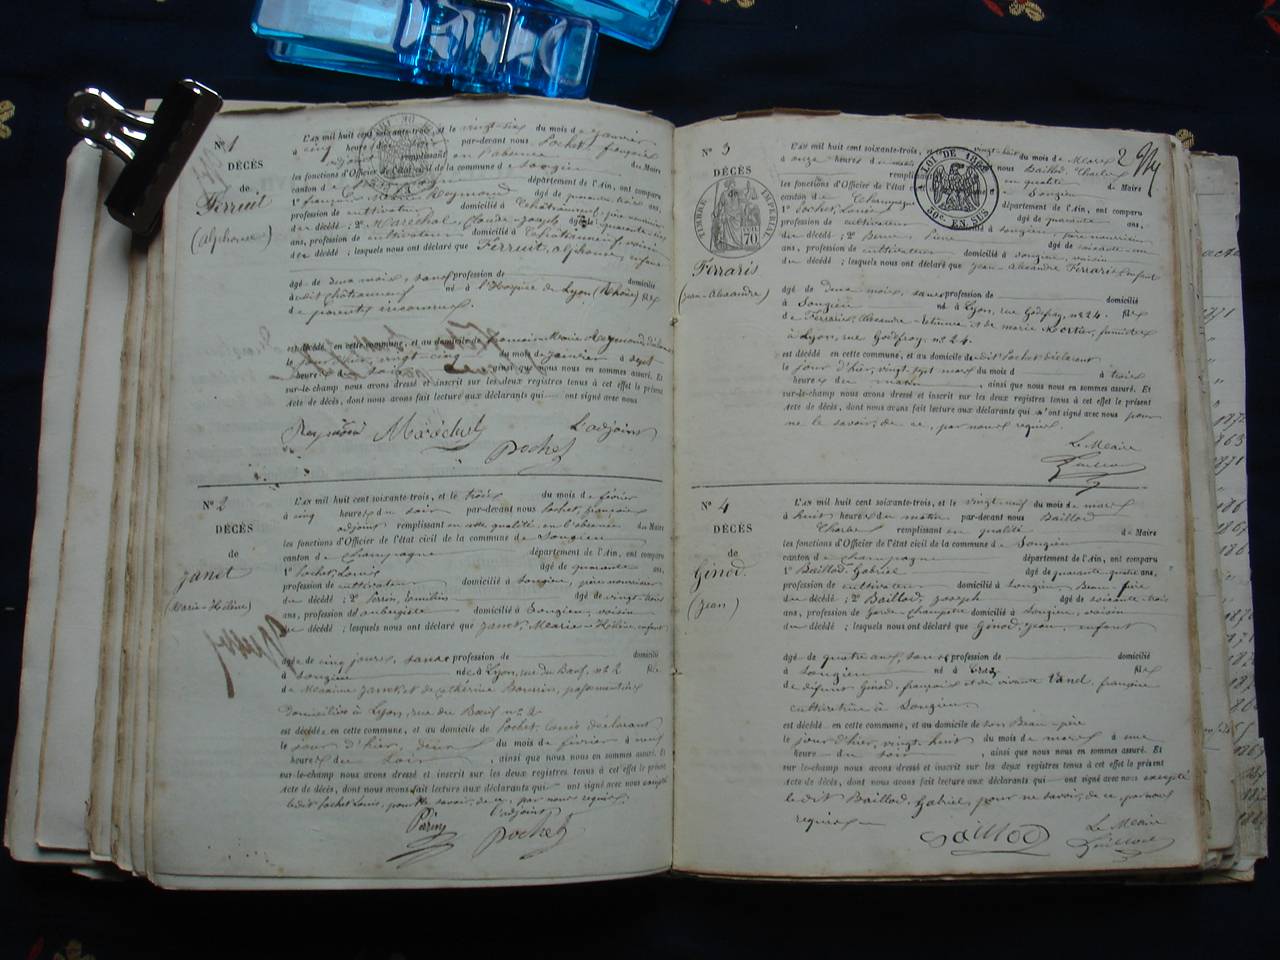 N° 1
DÉCÈS
de
Ferruit
(Alphonse)
L'AN mil huit cent soixante-trois, et le vingt-six du mois de janvier
à cinq heures du soir par-devant nous Pochet, françois
adjoint remplissant en l'absence du Maire
les fonctions d'Officier de l'état civil de la commune de Songieu
canton de Champagne département de l'Ain, ont comparu
1° françois Marie Reymond âgé de quarante trois ans,
profession de cultivateur domicilié à Châteauneuf, père nourricier
du décédé ; 2° Maréchal Claude-Joseph âgé de quarante-six
ans, profession de cultivateur domicilié à Châteauneuf, voisin
du décédé ; lesquels nous ont déclaré que Ferruit, alphonse, enfant
âgé de deux mois, sans profession de domicilié
à dit Châteauneuf né à l'Hospice de Lyon (Rhône) fils
de parents inconnus.
est décédé en cette commune, et au domicile de françois-Marie Reymond déclarant
le jour d'hier, vingt-cinq du mois de janvier à sept
heures du soir ainsi que nous nous en sommes assuré. Et
sur-le-champ nous avons dressé et inscrit sur les deux registres tenus à cet effet le présent
Acte de décès, dont nous avons fait lecture aux déclarants qui ont signé avec nous
Reymond Maréchal L'adjoint
Pochet
N° 2
DÉCÈS
de
Janet
(Marie-Hélène)
L'AN mil huit cent soixante-trois, et le trois du mois de février
à cinq heures du soir par-devant nous Pochet, françois
adjoint remplissant en cette qualité, en l'absence du Maire
les fonctions d'Officier de l'état civil de la commune de Songieu
canton de Champagne département de l'Ain, ont comparu
1° Pochet, Louis âgé de quarante ans,
profession de cultivateur domicilié à Songieu, père nourricier
du décédé ; 2° Perrin, âgé de vingt-trois
ans, profession d'aubergiste domicilié à Songieu, voisin
du décédé ; lesquels nous ont déclaré que Janet, Marie-Hélène, enfant
âgée de cinq jours, sans profession de domicilié
à Songieu née à Lyon, rue du Bœuf, n° 2 fille
de Janet et de Catherine
domiciliés à Lyon, rue du Bœuf n° 2
est décédée en cette commune, et au domicile de Pochet, Louis déclarant
le jour d'hier, deux du mois de février à neuf
heures du soir, ainsi que nous nous en sommes assuré. Et
sur-le-champ nous avons dressé et inscrit sur les deux registres tenus à cet effet le présent
Acte de décès, dont nous avons fait lecture aux déclarants qui ont signé avec nous excepté
le dit Pochet Louis, pour ne savoir, de ce, par nous requis.
L'adjoint
Perrin Pochet
2
A LOI DE 1862
30c. EN SUS
N° 3
DÉCÈS
de
TIMBRE IMPÉRIAL
70
Ferraris
(Jean-Alexandre)
L'AN mil huit cent soixante-trois, et le vingt-huit du mois de Mars
à onze heures du matin nous Baillod, Charles
remplissant en qualité de Maire
les fonctions d'Officier de l'état Songieu
canton de Champagne département de l'Ain, ont comparu
1° Pochet, Louis âgé de quarante ans,
profession de cultivateur domicilié à Songieu, père nourricier
du décédé ; 2° Pierre âgé de soixante-un
ans, profession de cultivateur domicilié à Songieu, voisin
du décédé ; lesquels nous ont déclaré que Jean-Alexandre Ferraris, enfant
âgé de deux mois, sans profession de domicilié
à Songieu né à Lyon, rue Godfroy, n° 24. fils
de Ferraris, Alexandre-Antoine et de marie
à Lyon, rue Godfroy, n° 24.
est décédé en cette commune, et au domicile de dit Pochet déclarant
le jour d'hier, vingt-sept mars du mois d à trois
heures du matin, ainsi que nous nous en sommes assuré. Et
sur-le-champ nous avons dressé et inscrit sur les deux registres tenus à cet effet le présent
Acte de décès, dont nous avons fait lecture aux déclarants qui n'ont signé avec nous pour
ne le savoir, de ce, par nous requis.
Le Maire
Baillod
N° 4
DÉCÈS
de
Ginod
(Jean)
L'AN mil huit cent soixante-trois, et le vingt-neuf du mois de mars
à huit heures du matin par-devant nous Baillod
Charles remplissant en qualité de Maire
les fonctions d'Officier de l'état civil de la commune de Songieu
canton de Champagne département de l'Ain, ont comparu
1° Baillod, Gabriel âgé de quarante-quatre ans,
profession de cultivateur domicilié à Songieu, Beau-père
du décédé ; 2° Baillod, Joseph âgé de soixante-trois
ans, profession de Garde-Champêtre domicilié à Songieu, voisin
du décédé ; lesquels nous ont déclaré que Ginod, Jean, enfant
âgé de quatre ans, sans profession de domicilié
à Songieu né à fils
de défunt Ginod, françois et de vivante Vanel, françoise
cultivatrice à Songieu
est décédé en cette commune, et au domicile de son Beau-père
le jour d'hier, vingt-huit du mois de mars à une
heure du soir, ainsi que nous nous en sommes assuré. Et
sur-le-champ nous avons dressé et inscrit sur les deux registres tenus à cet effet le présent
Acte de décès, dont nous avons fait lecture aux déclarants qui ont signé avec nous excepté
le dit Baillod, Gabriel, pour ne savoir, de ce par nous
requis
Baillod Le Maire
Baillod